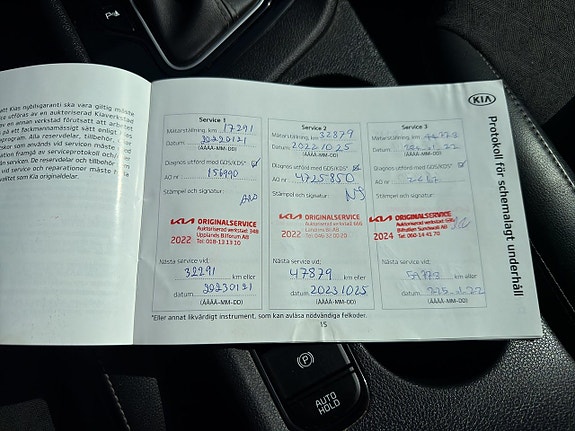 att Kias nybilsgaranti ska vara giltig måste
utföras av en auktoriserad Kiaverkstad
av en annan verkstad förutsatt att arbetet
på ett fackmannamässigt sätt enligt Kias
program. Alla reservdelar, tillbehör
som används vid servicen måste
framgå av serviceprotokoll och
servicen. De reservdelar och tillbehör
vid service och reparationer måste
kvalitet som Kia originaldelar.
KIA
Protokoll för schemalagt underhåll
Service 1
Mätarställning, km 17291
Datum 20220121
(ÅÅÅÅ-MM-DD)
Diagnos utförd med GDS/KDS*
AO nr 156990
Stämpel och signatur:
KIA ORIGINALSERVICE
Auktoriserad verkstad 348
Upplands Bilforum AB
2022 Tel: 018-13 13 10
Nästa service vid:
32291 km eller
datum 20230121
(ÅÅÅÅ-MM-DD)
Service 2
Mätarställning, km 32879
Datum 20221025
(ÅÅÅÅ-MM-DD)
Diagnos utförd med GDS/KDS*
AO nr 4725850
Stämpel och signatur:
KIA ORIGINALSERVICE
Auktoriserad verkstad
AB
2022 Tel: 046 32 00 20
Nästa service vid:
47879 km eller
datum 20231025
(ÅÅÅÅ-MM-DD)
Service 3
Mätarställning, km 44773
Datum
(ÅÅÅÅ-MM-DD)
Diagnos utförd med GDS/KDS*
AO nr
Stämpel och signatur:
KIA ORIGINALSERVICE
Auktoriserad verkstad
Bilhallen Sundsvall AB
2024 Tel: 060-14 41 70
Nästa service vid:
59773 km eller
datum
(ÅÅÅÅ-MM-DD)
*Eller annat likvärdigt instrument, som kan avläsa nödvändiga felkoder.
15
P
AUTO
HOLD